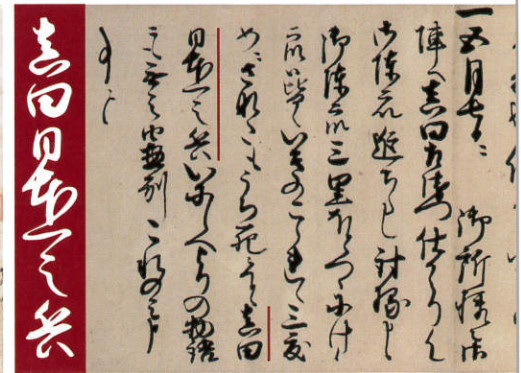 一五月七日ニ 御所様御
陣へ真田左衛門仕かゝり候て
御陣衆追ちらし討捕申候
御陣衆三里ほとつゝにけ候
衆皆々いきのこられ候三度
めにさなたもうち死にて候真田
日本一之兵いにしへよりの物語
ニも無之由惣別これのみ申
事ニ候
真田日本一之兵